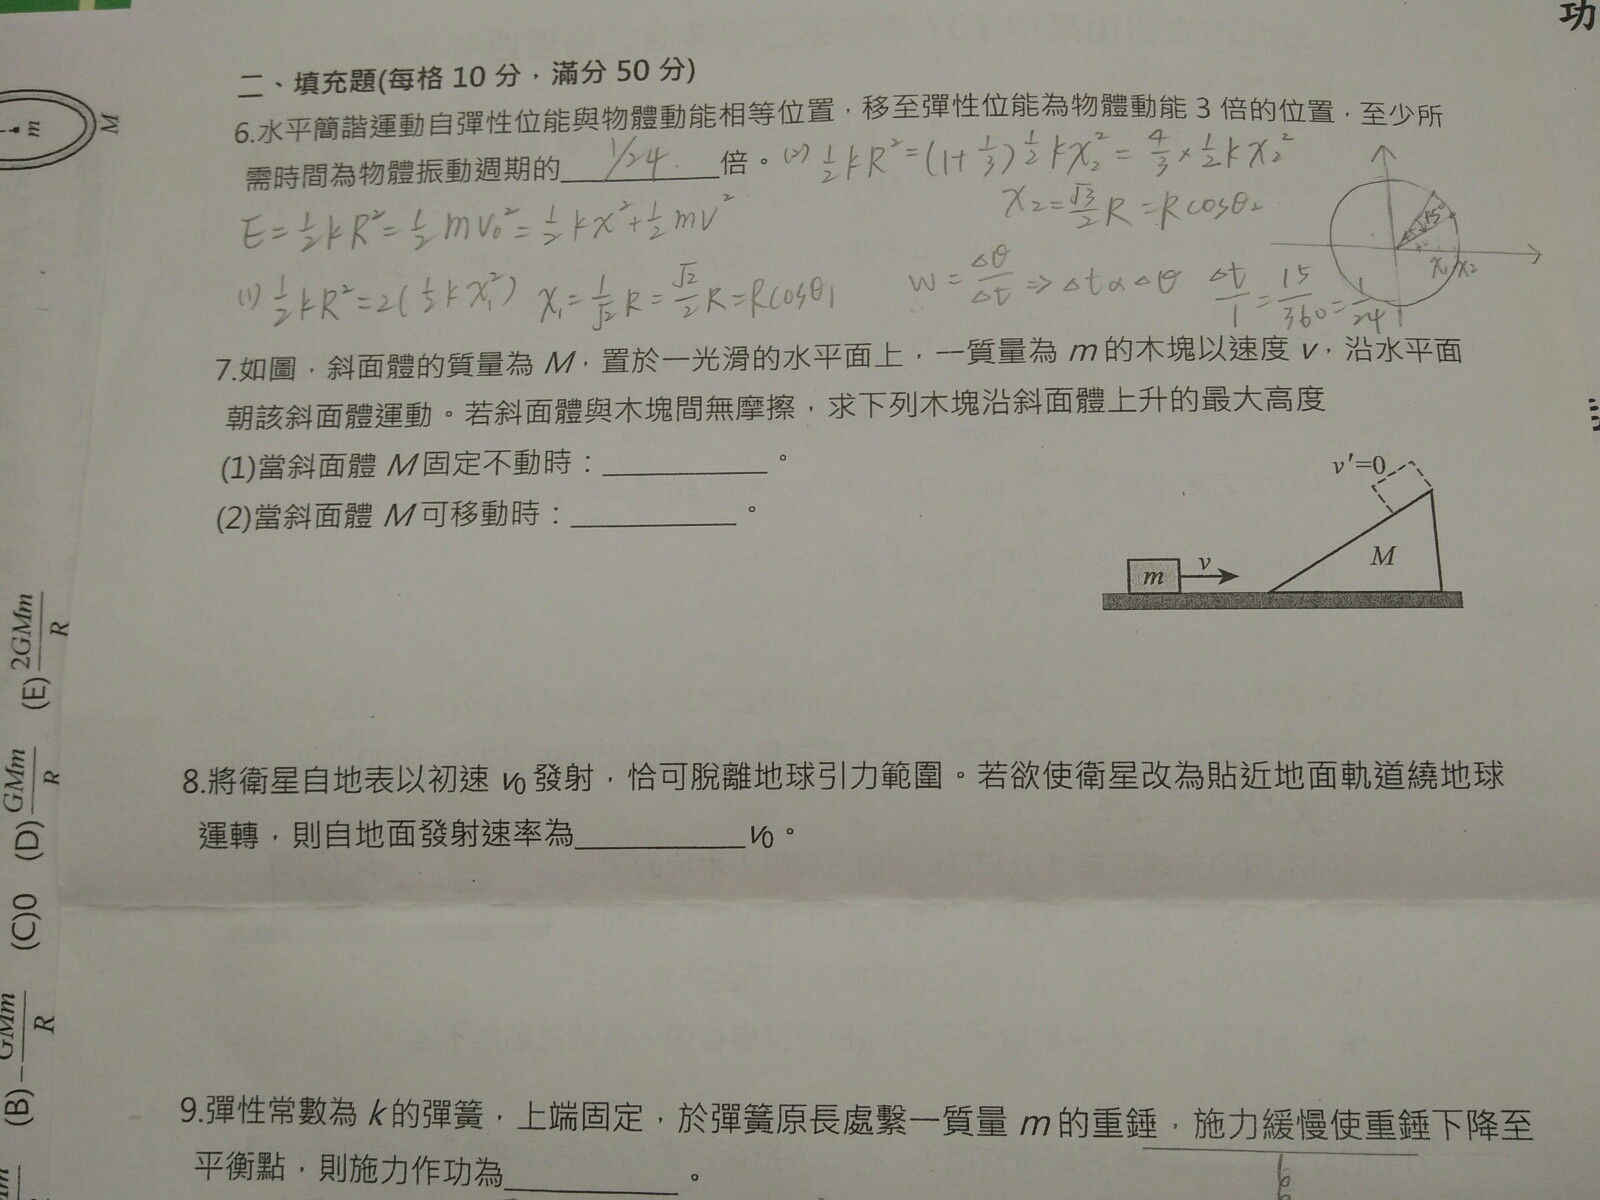 功
二、填充題(每格 10 分，滿分 50 分)
6.水平簡諧運動自彈性位能與物體動能相等位置，移至彈性位能為物體動能 3 倍的位置，至少所
需時間為物體振動週期的 1/24. 倍。
(2) ½kR² = (1+⅓)½kx₂² = 4/3 × ½kx₂²
x₂ = √3/2 R = Rcosθ₂
E = ½kR² = ½mv₀² = ½kx² + ½mv²
(1) ½kR² = 2(½kx₁²) x₁ = 1/√2 R = √2/2 R = Rcosθ₁
W = Δθ/Δt ⇒ Δt α Δθ Δt/1 = 15/360 = 1/24
15°
x₁ x₂
7.如圖，斜面體的質量為 M，置於一光滑的水平面上，一質量為 m 的木塊以速度 v，沿水平面
朝該斜面體運動。若斜面體與木塊間無摩擦，求下列木塊沿斜面體上升的最大高度
(1)當斜面體 M 固定不動時：＿＿＿＿＿。
(2)當斜面體 M 可移動時：＿＿＿＿＿。
v'=0
m v M
8.將衛星自地表以初速 v₀ 發射，恰可脫離地球引力範圍。若欲使衛星改為貼近地面軌道繞地球
運轉，則自地面發射速率為＿＿＿＿＿v₀。
9.彈性常數為 k 的彈簧，上端固定，於彈簧原長處繫一質量 m 的重錘，施力緩慢使重錘下降至
平衡點，則施力作功為＿＿＿＿＿。
m M
(B) −GMm/R (C)0 (D) GMm/R (E) 2GMm/R